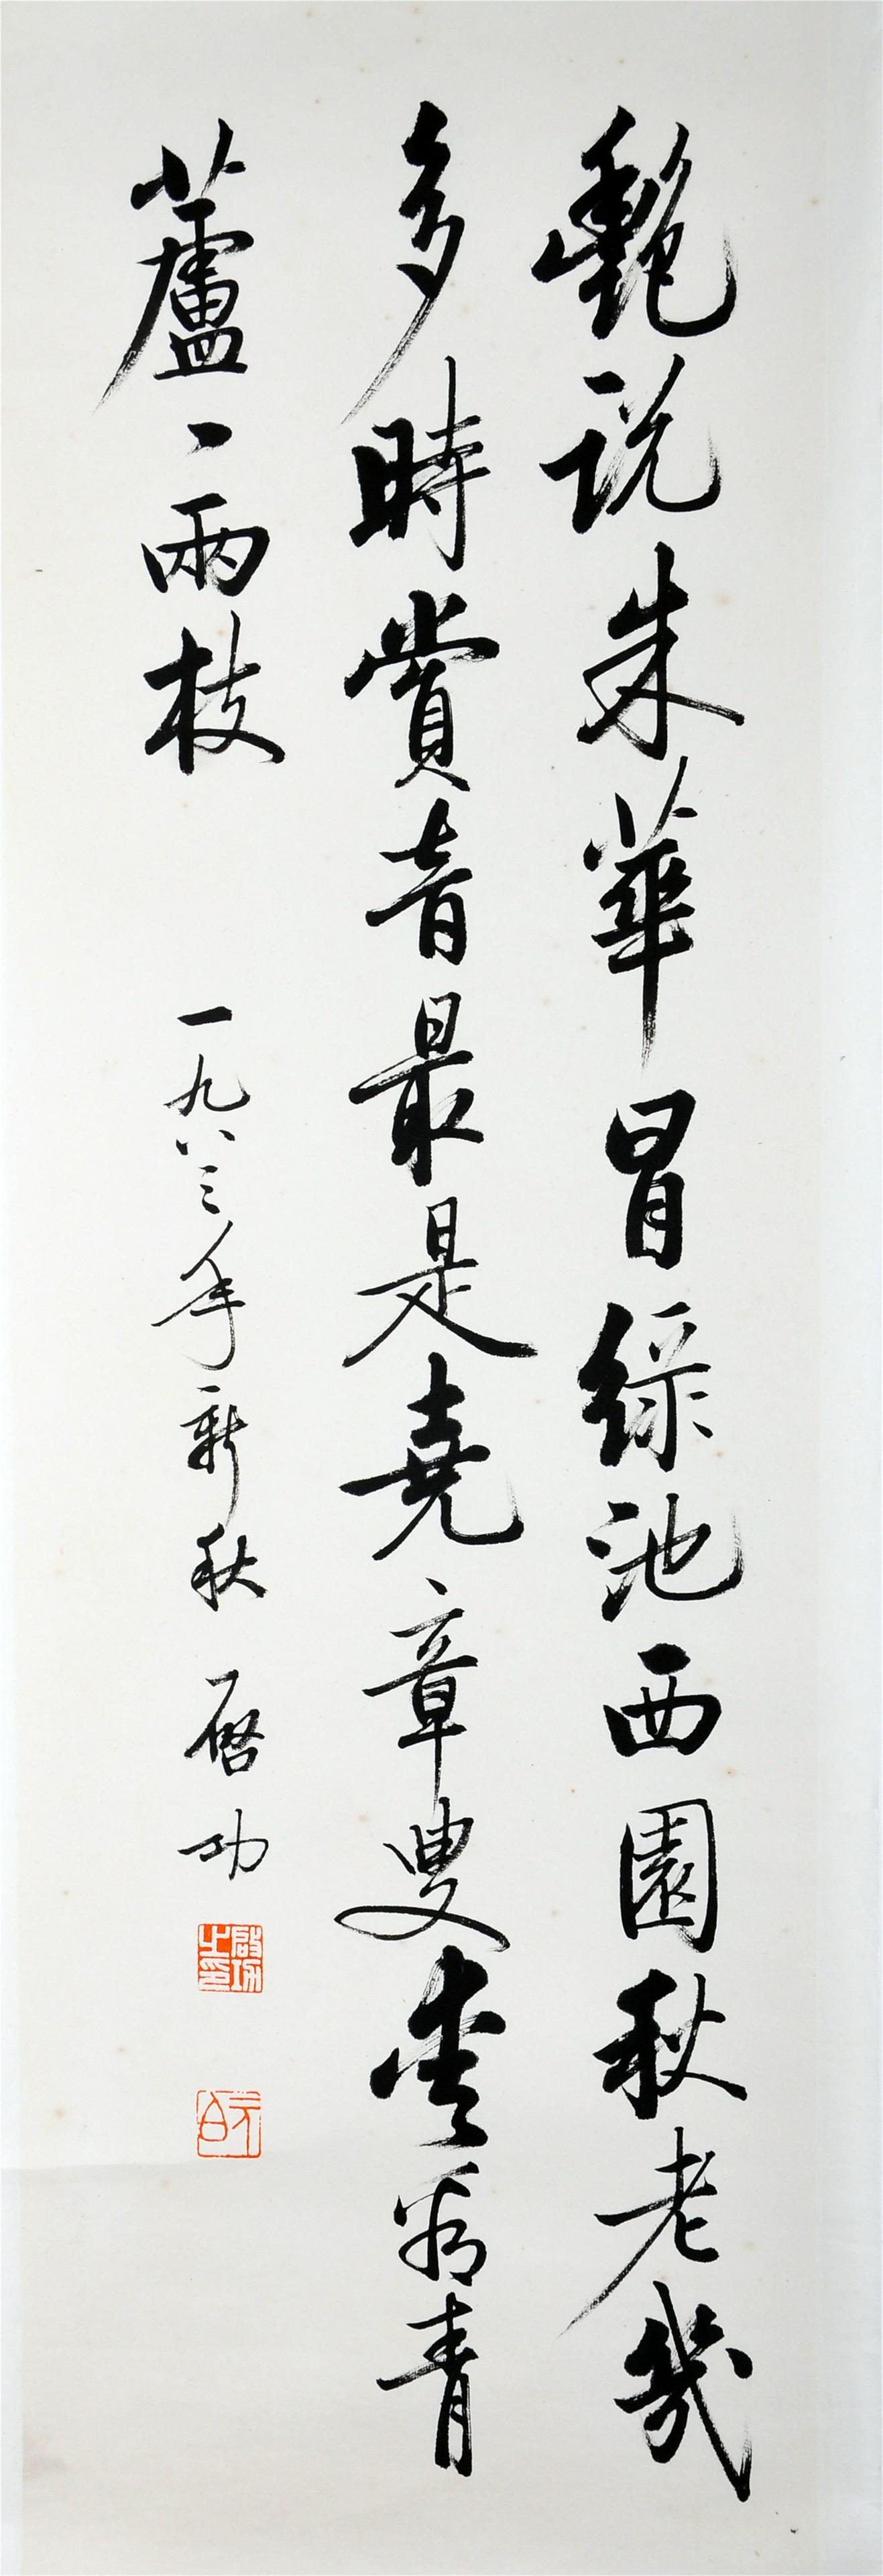 艷說朱華冒綠池西園秋老幾
多時賞音最是堯章叟愛青
蘆一兩枝
一九八三年新秋 啓功
啟功之印
元白